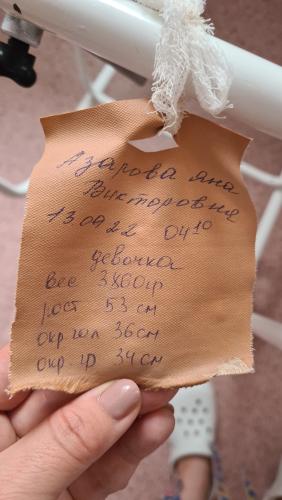 Азарова Яна
Викторовна
13.09.22 04¹⁰
девочка
вес 3860гр
рост 53 см
окр гол 36см
окр. гр 34см